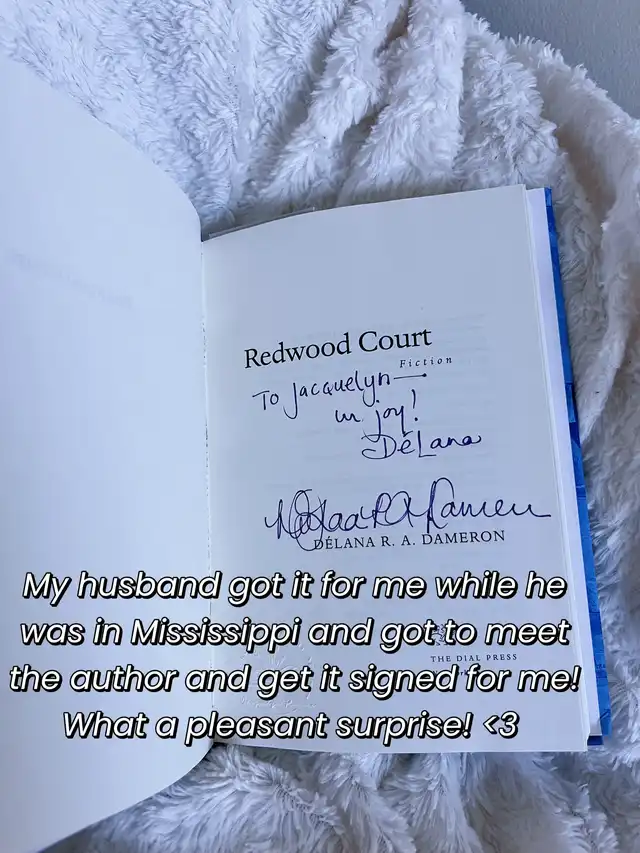 Redwood Court
Fiction
To Jacquelyn—
in joy!
DéLana
DÉLANA R. A. DAMERON
My husband got it for me while he
was in Mississippi and got to meet
THE DIAL PRESS
the author and get it signed for me!
What a pleasant surprise! <3